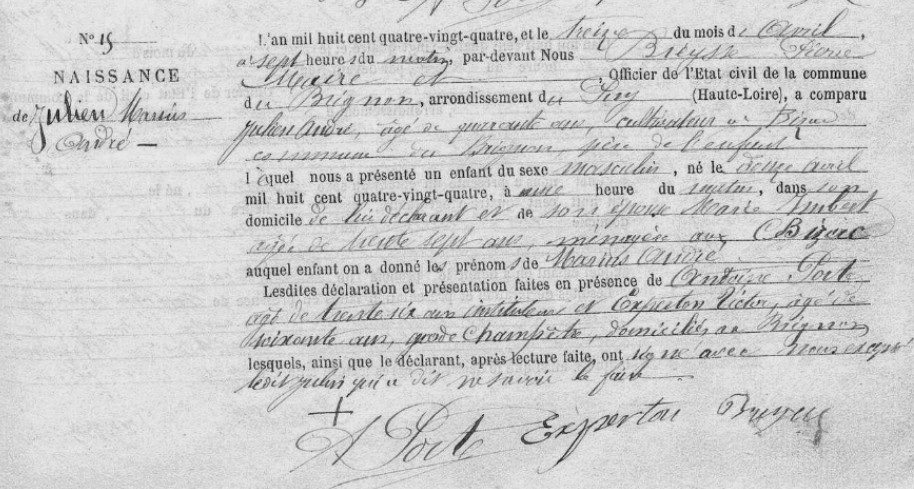 N° 15
NAISSANCE
de Julien Marius
André —
L'an mil huit cent quatre-vingt-quatre, et le treize du mois d'Avril,
a sept heures du matin, par-devant Nous Breysse Pierre
Maire et , Officier de l'Etat civil de la commune
du Brignon, arrondissement du Puy (Haute-Loire), a comparu
Julien André, âgé de quarante ans, cultivateur a Bizac
commune du Brignon, père de l'enfant
lequel nous a présenté un enfant du sexe masculin, né le douze avril
mil huit cent quatre-vingt-quatre, à une heure du matin, dans son
domicile de lui déclarant et de son épouse Marie Imbert
agée de trente sept ans, ménagère aux Bizac
auquel enfant on a donné les prénoms de Marius André
Lesdites déclaration et présentation faites en présence de Antoine Porte
agé de trente six ans instituteur et Experton Victor, âgé de
soixante ans, garde Champêtre, domiciliés au Brignon
lesquels, ainsi que le déclarant, après lecture faite, ont signé avec Nous excepté
ledit Julien qui a dit ne savoir le faire.
A Porte Experton Breysse